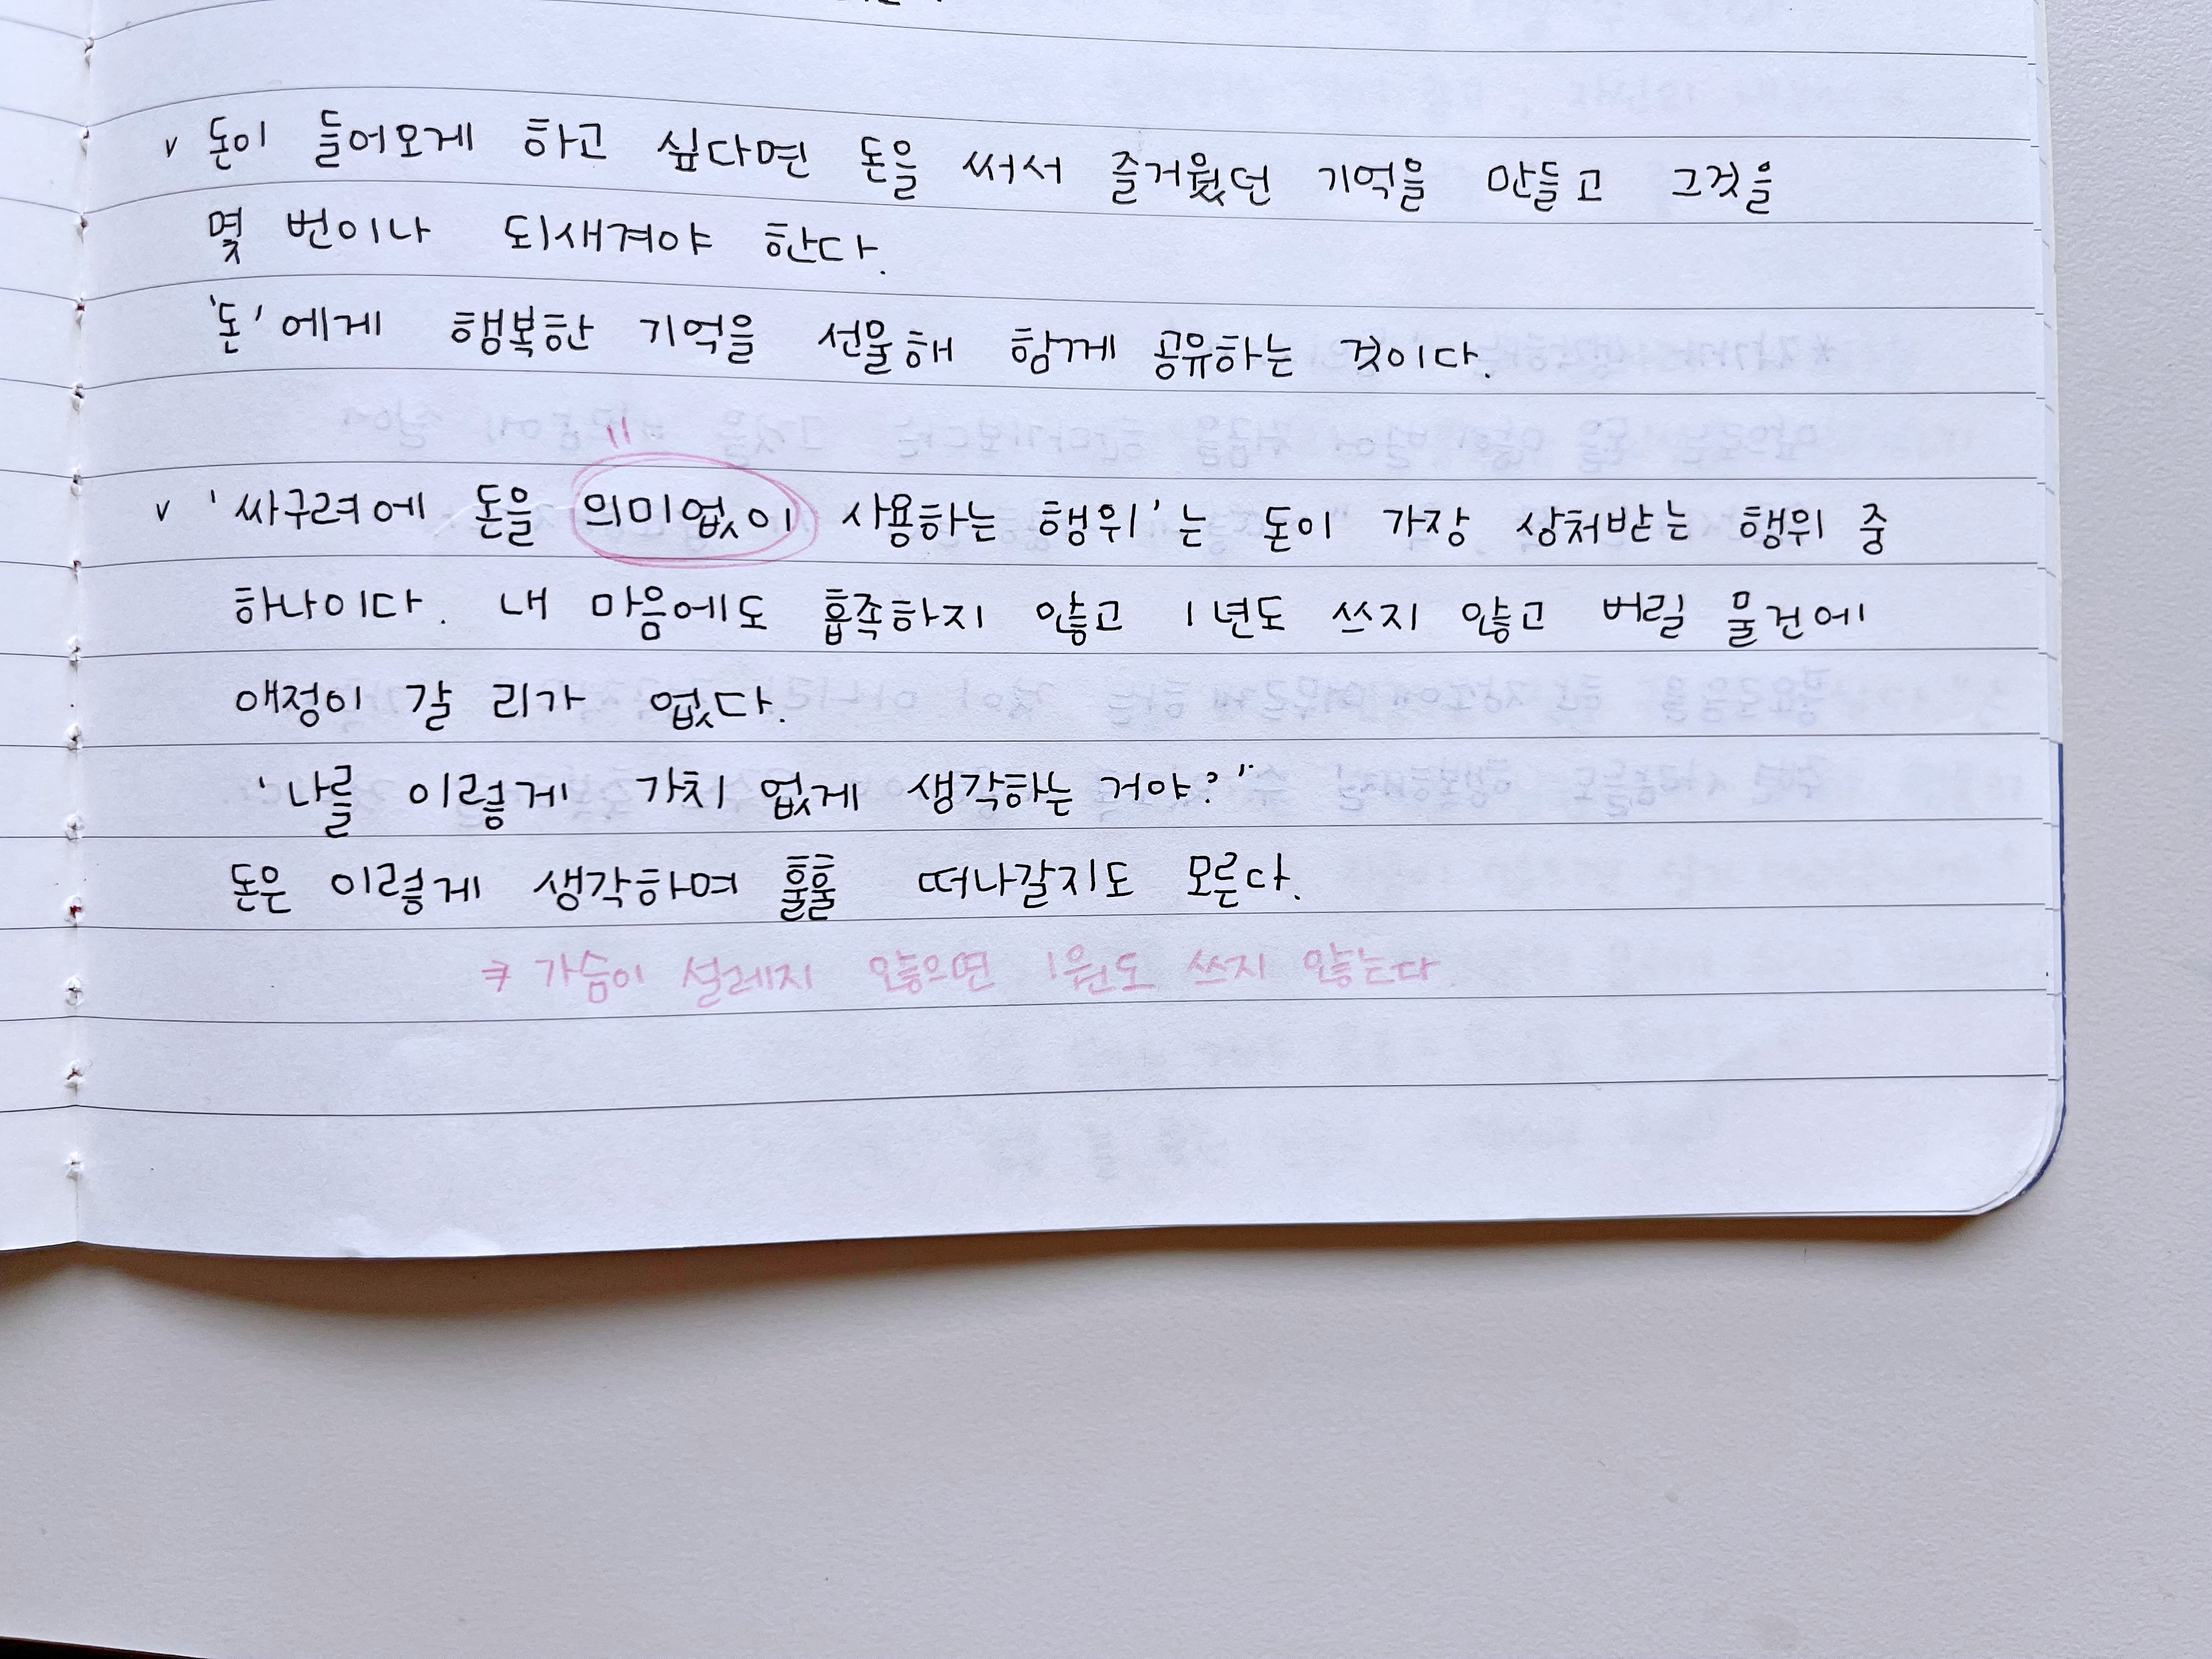 v 돈이 들어오게 하고 싶다면 돈을 써서 즐거웠던 기억을 만들고 그것을
몇 번이나 되새겨야 한다.
'돈'에게 행복한 기억을 선물해 함께 공유하는 것이다.
v '싸구려에 돈을 의미없이 사용하는 행위'는 돈이 가장 상처받는 행위 중
하나이다. 내 마음에도 흡족하지 않고 1년도 쓰지 않고 버릴 물건에
애정이 갈 리가 없다.
'나를 이렇게 가치 없게 생각하는 거야?"
돈은 이렇게 생각하며 훌훌 떠나갈지도 모른다.
⇒ 가슴이 설레지 않으면 1원도 쓰지 않는다